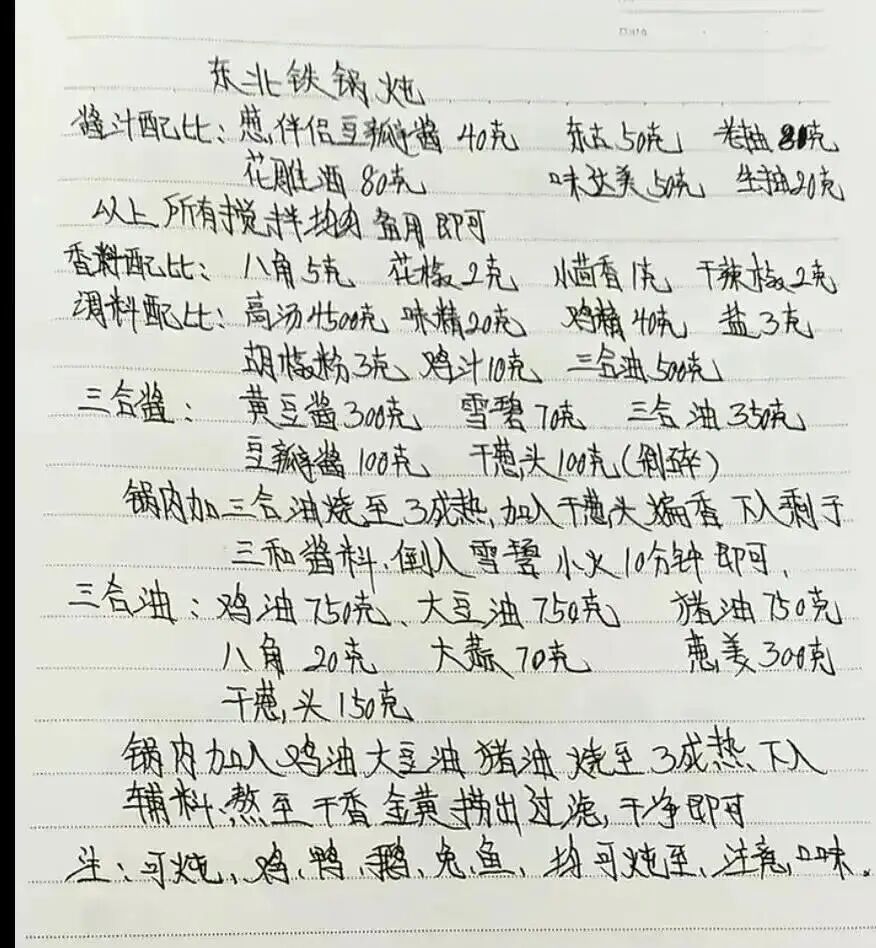 东北铁锅炖
酱汁配比：葱伴侣豆瓣酱40克 东古50克 老抽80克
花雕酒80克 味达美50克 生抽20克
以上所有搅拌均匀备用即可
香料配比：八角5克 花椒2克 小茴香1克 干辣椒2克
调料配比：高汤4500克 味精20克 鸡精40克 盐3克
胡椒粉3克 鸡汁10克 三合油500克
三合酱：黄豆酱300克 雪碧70克 三合油350克
豆瓣酱100克 干葱头100克(剁碎)
锅内加三合油烧至3成热,加入干葱头煸香下入剩于
三和酱料,倒入雪碧小火10分钟即可,
三合油：鸡油750克、大豆油750克 猪油750克
八角20克 大蒜70克 葱姜300克
干葱头150克
锅内加入鸡油大豆油猪油烧至3成热下入
辅料,熬至干香金黄捞出过滤,干净即可
注：可炖、鸡、鸭、鹅、兔、鱼、均可炖至、注意口味。